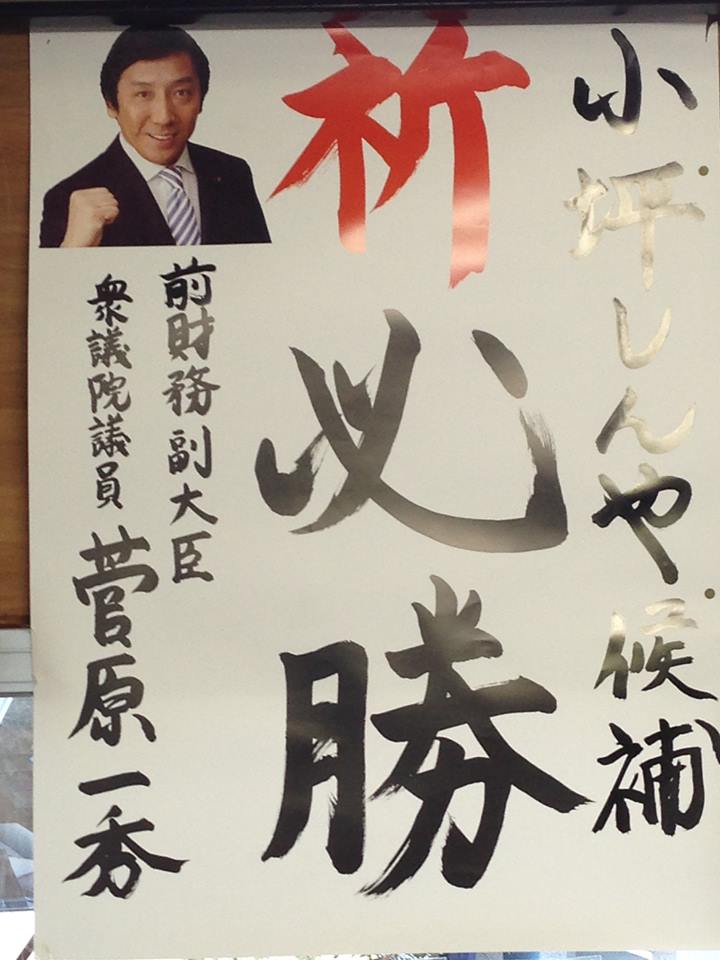 小坪しんや候補
祈必勝
前財務副大臣
衆議院議員 菅原一秀